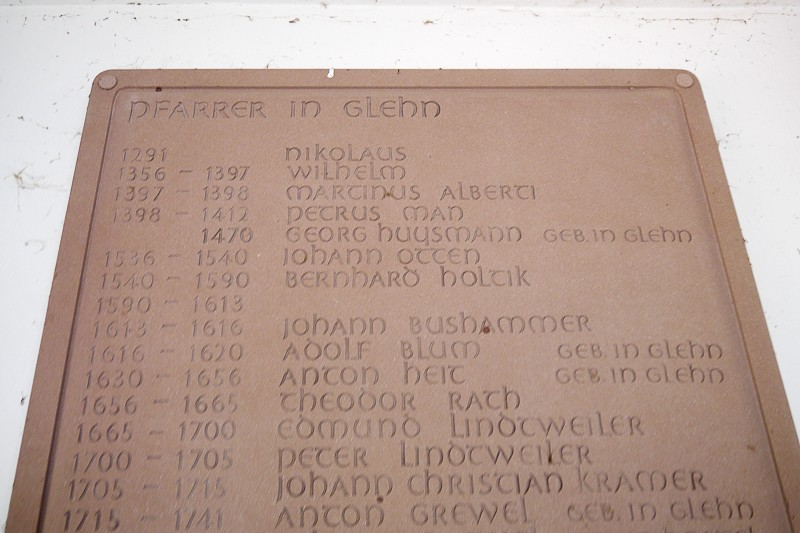 PFARRER IN GLEHN
1291 NIKOLAUS
1356 – 1397 WILHELM
1397 – 1398 MARTINUS ALBERTI
1398 – 1412 PETRUS MAN
1470 GEORG HUYSMANN GEB. IN GLEHN
1536 – 1540 JOHANN OTTEN
1540 – 1590 BERNHARD HOLTIK
1590 – 1613
1613 – 1616 JOHANN BUSHAMMER
1616 – 1620 ADOLF BLUM GEB. IN GLEHN
1630 – 1656 ANTON HEIT GEB. IN GLEHN
1656 – 1665 THEODOR RATH
1665 – 1700 EDMUND LINDTWEILER
1700 – 1705 PETER LINDTWEILER
1705 – 1715 JOHANN CHRISTIAN KRAMER
1715 – 1741 ANTON GREWEL GEB. IN GLEHN